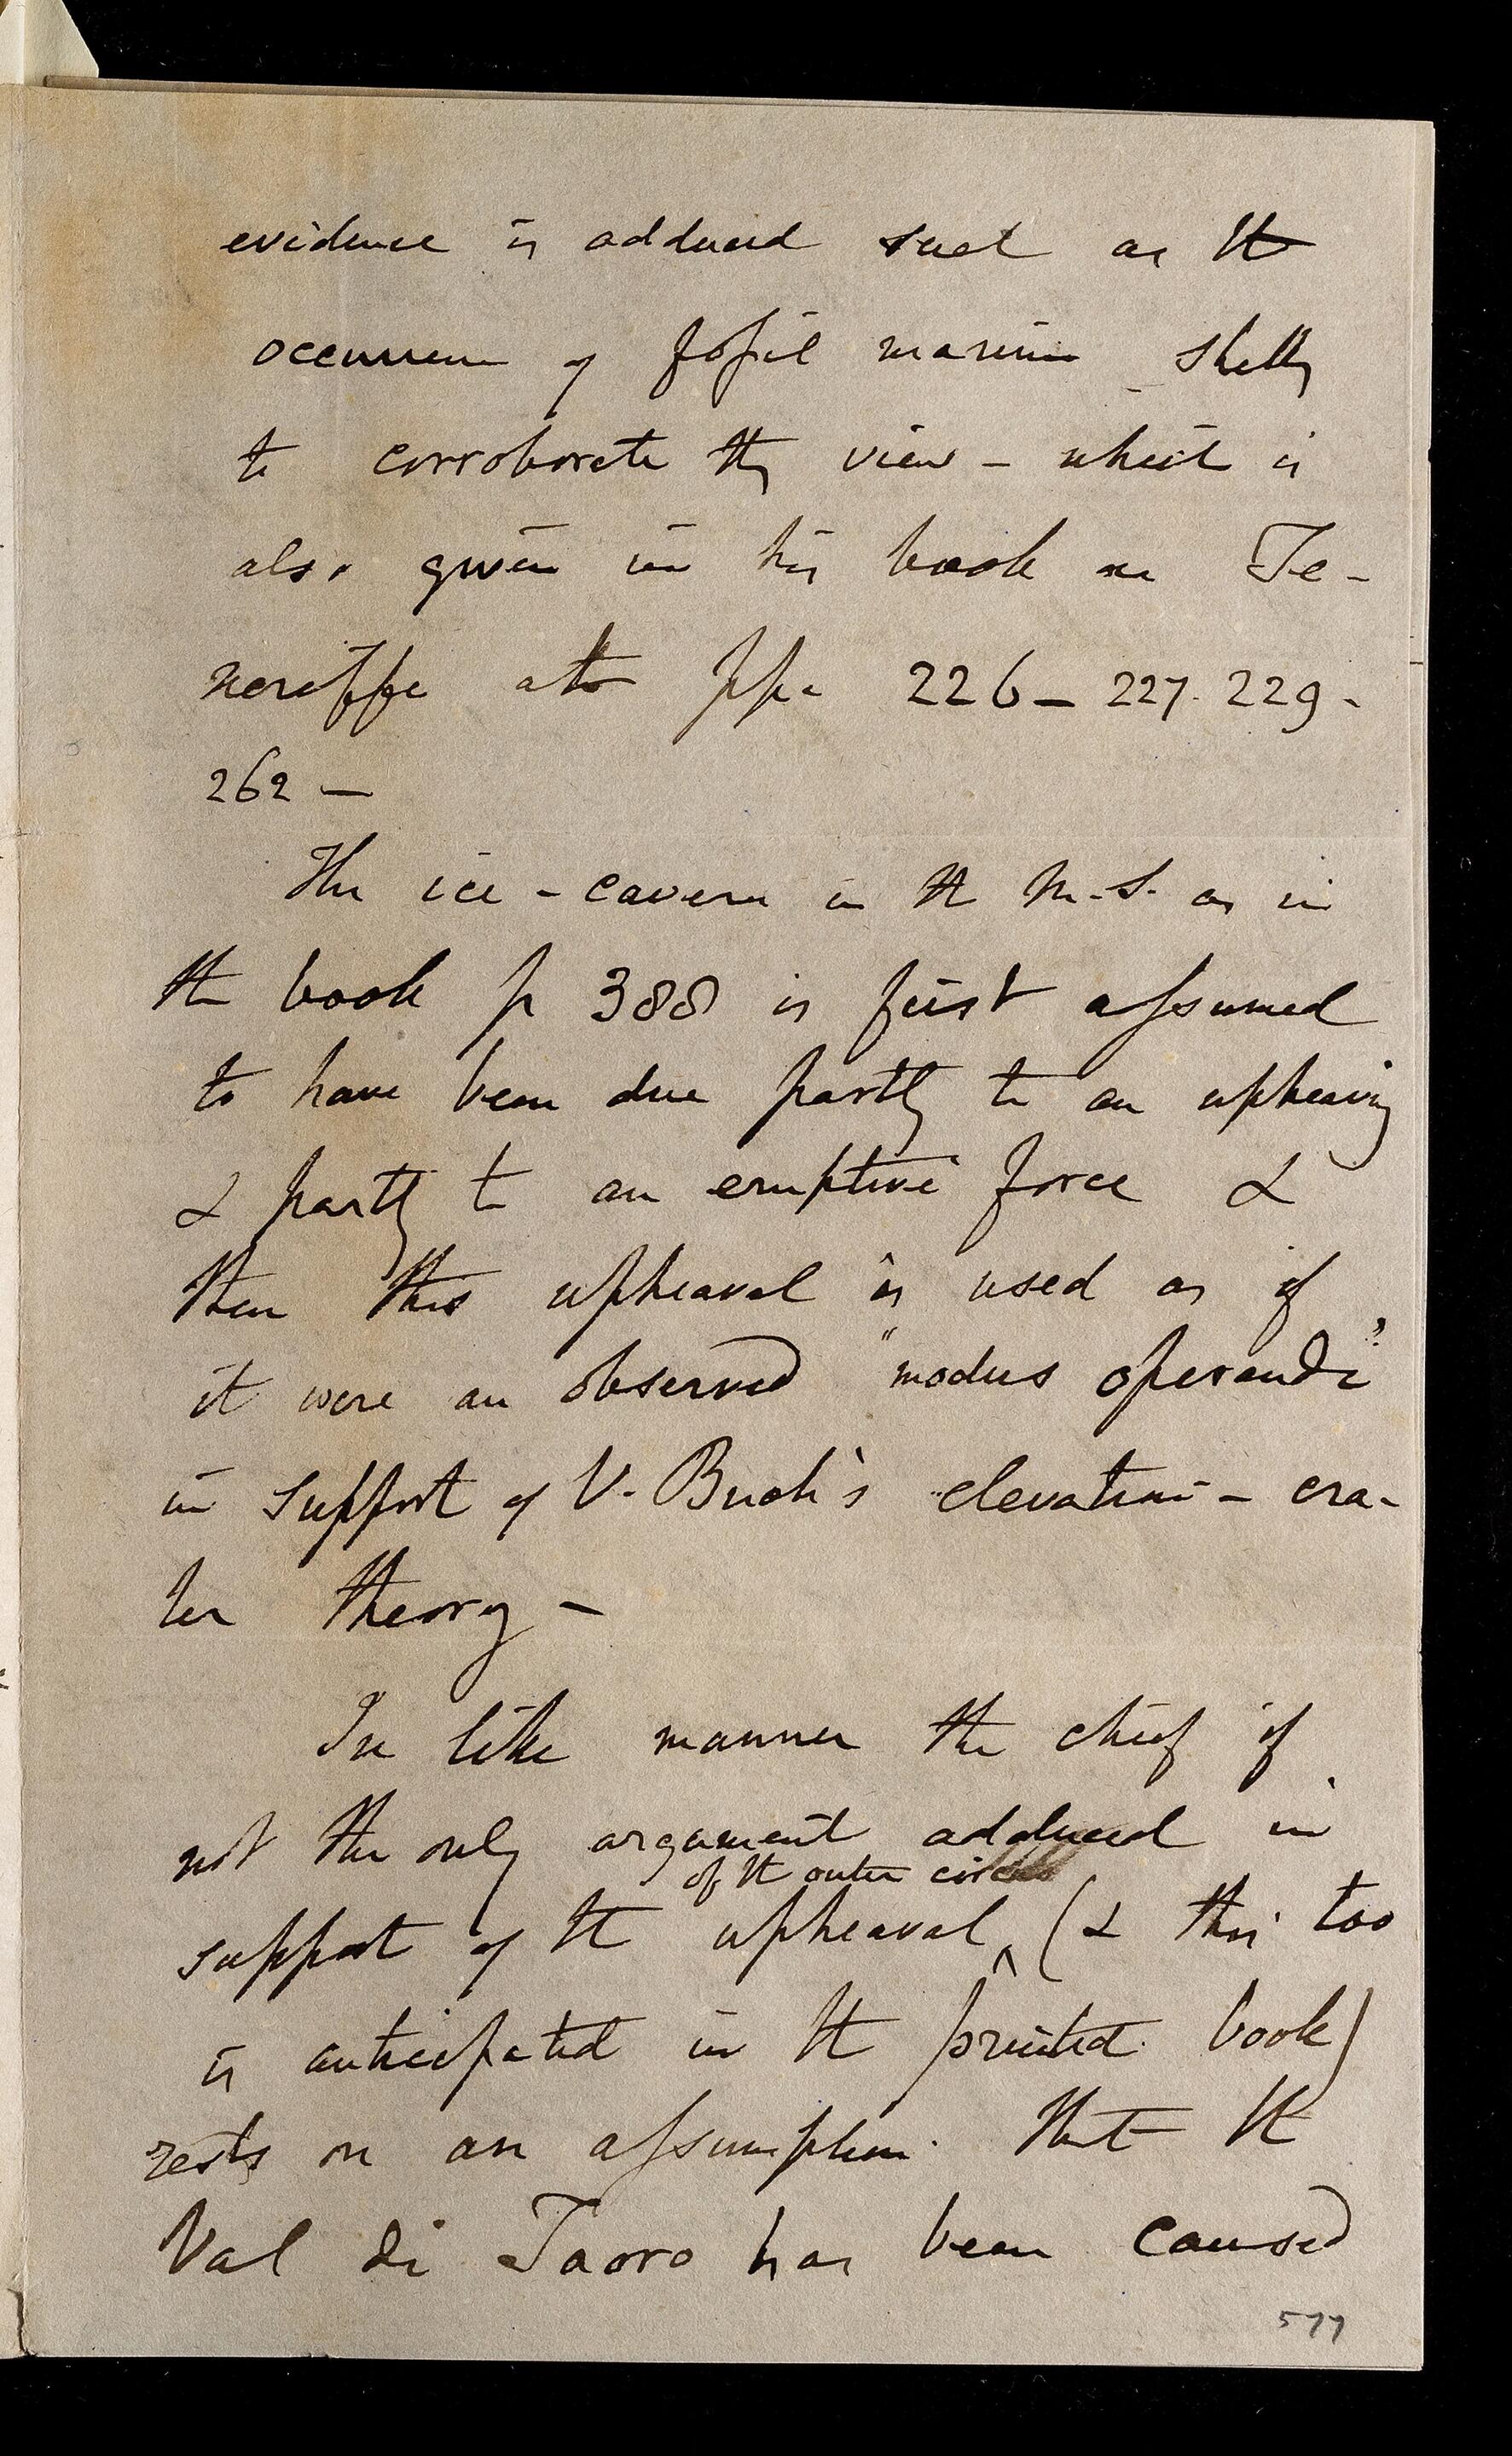 evidence is adduced such as the
occurrence of fossil marine shells
to corroborate this view - which is
also given in his book on Te-
neriffe at ppe 226 - 227. 229 -
262 -
The ice-cavern in the M.S. as in
the book p 388 is first assumed
to have been due partly to an upheaving
& partly to an eruptive force &
then this upheaval is used as if
it were an observed "modus operandi"
in support of V. Buch's elevation - cra-
ter theory -
In like manner the chief if
not the only argument adduced in
of the outer circle
support of the upheaval (& this too
is anticipated in the printed book)
rests on an assumption that the
Val di Taoro has been caused
577